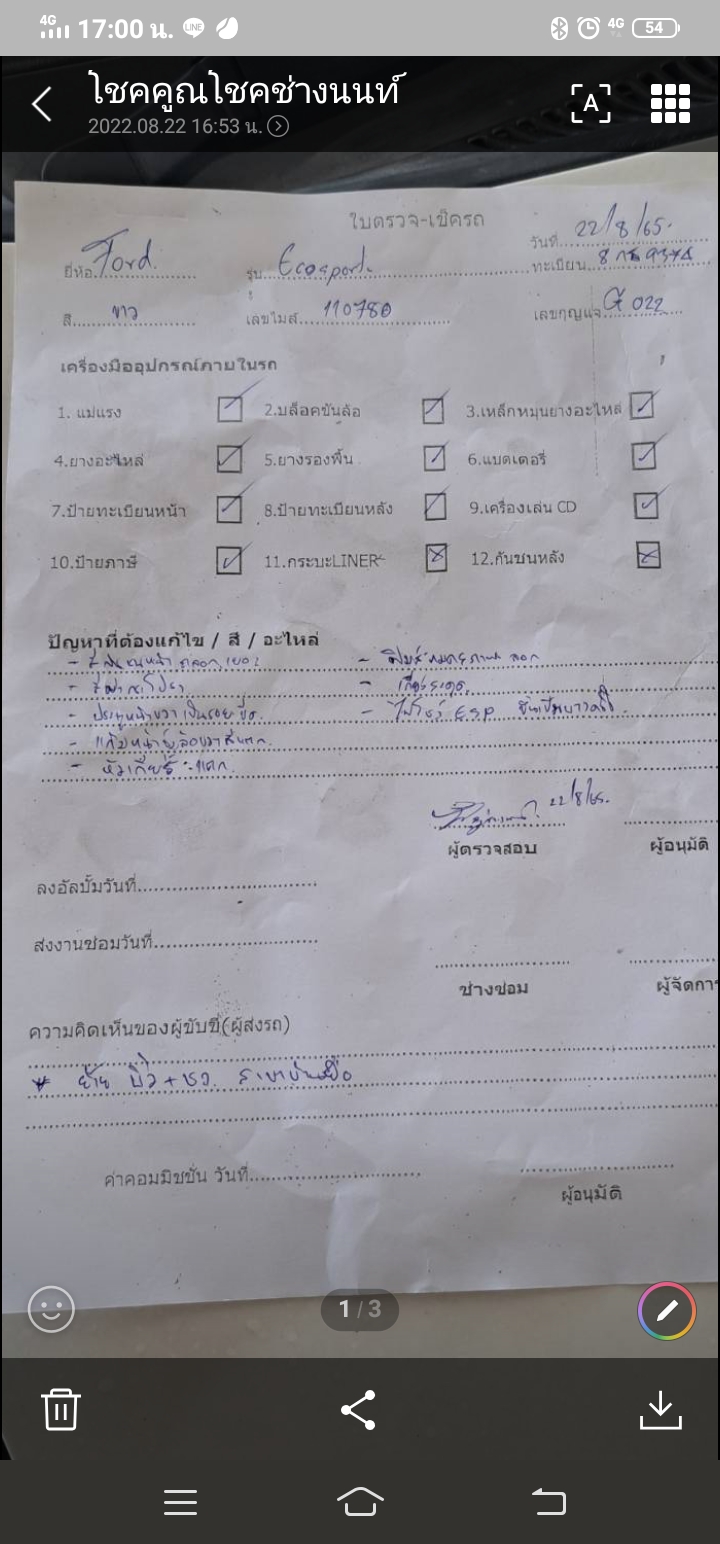 4G 17:00 น. LINE 4G 54
โชคคูณโชคช่างนนท์
2022.08.22 16:53 น.
A
ใบตรวจ-เช็ครถ
วันที่ 22/8/65.
ยี่ห้อ Ford. รุ่น Ecosport. ทะเบียน 8
สี ขาว เลขไมล์ 110780 เลขกุญแจ G 022
เครื่องมืออุปกรณ์ภายในรถ
1. แม่แรง 2.บล๊อคขันล้อ 3.เหล็กหมุนยางอะไหล่
4.ยางอะไหล่ 5.ยางรองพื้น 6.แบตเตอรี่
7.ป้ายทะเบียนหน้า 8.ป้ายทะเบียนหลัง 9.เครื่องเล่น CD
10.ป้ายภาษี 11.กระบะLINER 12.กันชนหลัง
ปัญหาที่ต้องแก้ไข / สี / อะไหล่
- สีกันชนหน้า ถลอก - ลอก
- สีฝากระโปรง -
- ประตูหน้าขวา เป็นรอยขีด. - ไฟโชว์ E.S.P
- แก้มหน้า สีแตก.
- หัวเกียร์ แตก.
22/8/65.
ผู้ตรวจสอบ ผู้อนุมัติ
ลงอัลบั้มวันที่
ส่งงานซ่อมวันที่
ช่างซ่อม ผู้จัดการ
ความคิดเห็นของผู้ขับขี่(ผู้ส่งรถ)
* ย้าย บิ๊ว +
ค่าคอมมิชชั่น วันที่
ผู้อนุมัติ
1 / 3